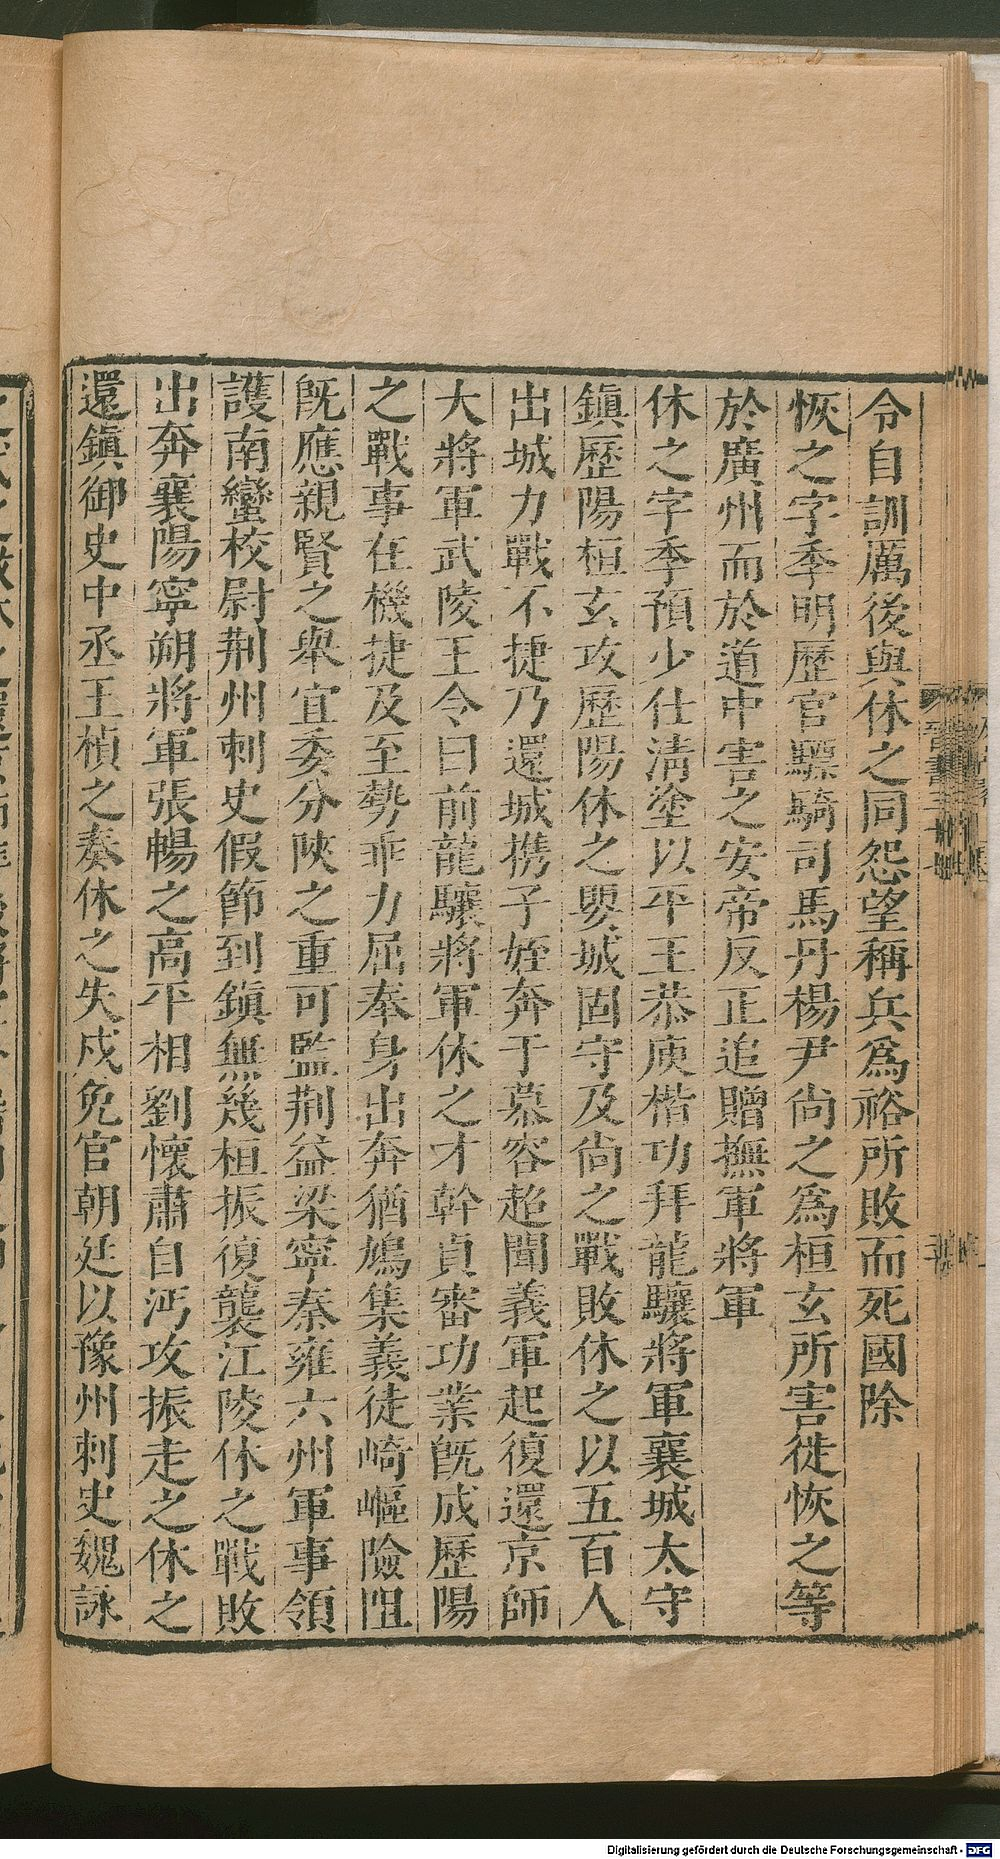 令自訓厲後與休之同怨望稱兵爲裕所敗而死國除
恢之字季明歷官驃騎司馬丹楊尹尙之爲桓玄所害徙恢之等
於廣州而於道中害之安帝反正追贈撫軍將軍
休之字季預少仕淸塗以平王恭庾楷功拜龍驤將軍襄城太守
鎭歷陽桓玄攻歷陽休之嬰城固守及尙之戰敗休之以五百人
出城力戰不捷乃還城携子姪奔于慕容超聞義軍起復還京師
大將軍武陵王令曰前龍驤將軍休之才幹貞審功業旣成歷陽
之戰事在機捷及至勢乖力屈奉身出奔猶鳩集義徒崎嶇險阻
旣應親賢之舉宜委分陝之重可監荆益梁寧秦雍六州軍事領
護南蠻校尉荆州刺史假節到鎭無幾桓振復襲江陵休之戰敗
出奔襄陽寧朔將軍張暢之高平相劉懷肅自沔攻振走之休之
還鎭御史中丞王楨之奏休之失戍免官朝廷以豫州刺史魏詠
Digitalisierung gefördert durch die Deutsche Forschungsgemeinschaft - DFG